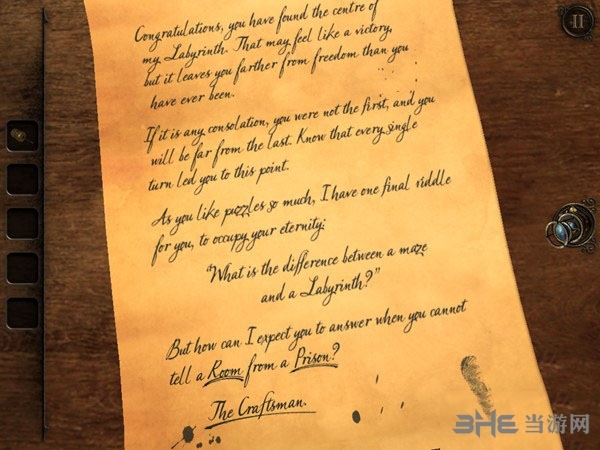 Congratulations, you have found the centre of
my Labyrinth. That may feel like a victory,
but it leaves you farther from freedom than you
have ever been.
If it is any consolation, you were not the first, and you
will be far from the last. Know that every single
turn led you to this point.
As you like puzzles so much, I have one final riddle
for you, to occupy your eternity:
"What is the difference between a maze
and a Labyrinth?"
But how can I expect you to answer when you cannot
tell a Room from a Prison?
The Craftsman.
II
3HE 当游网